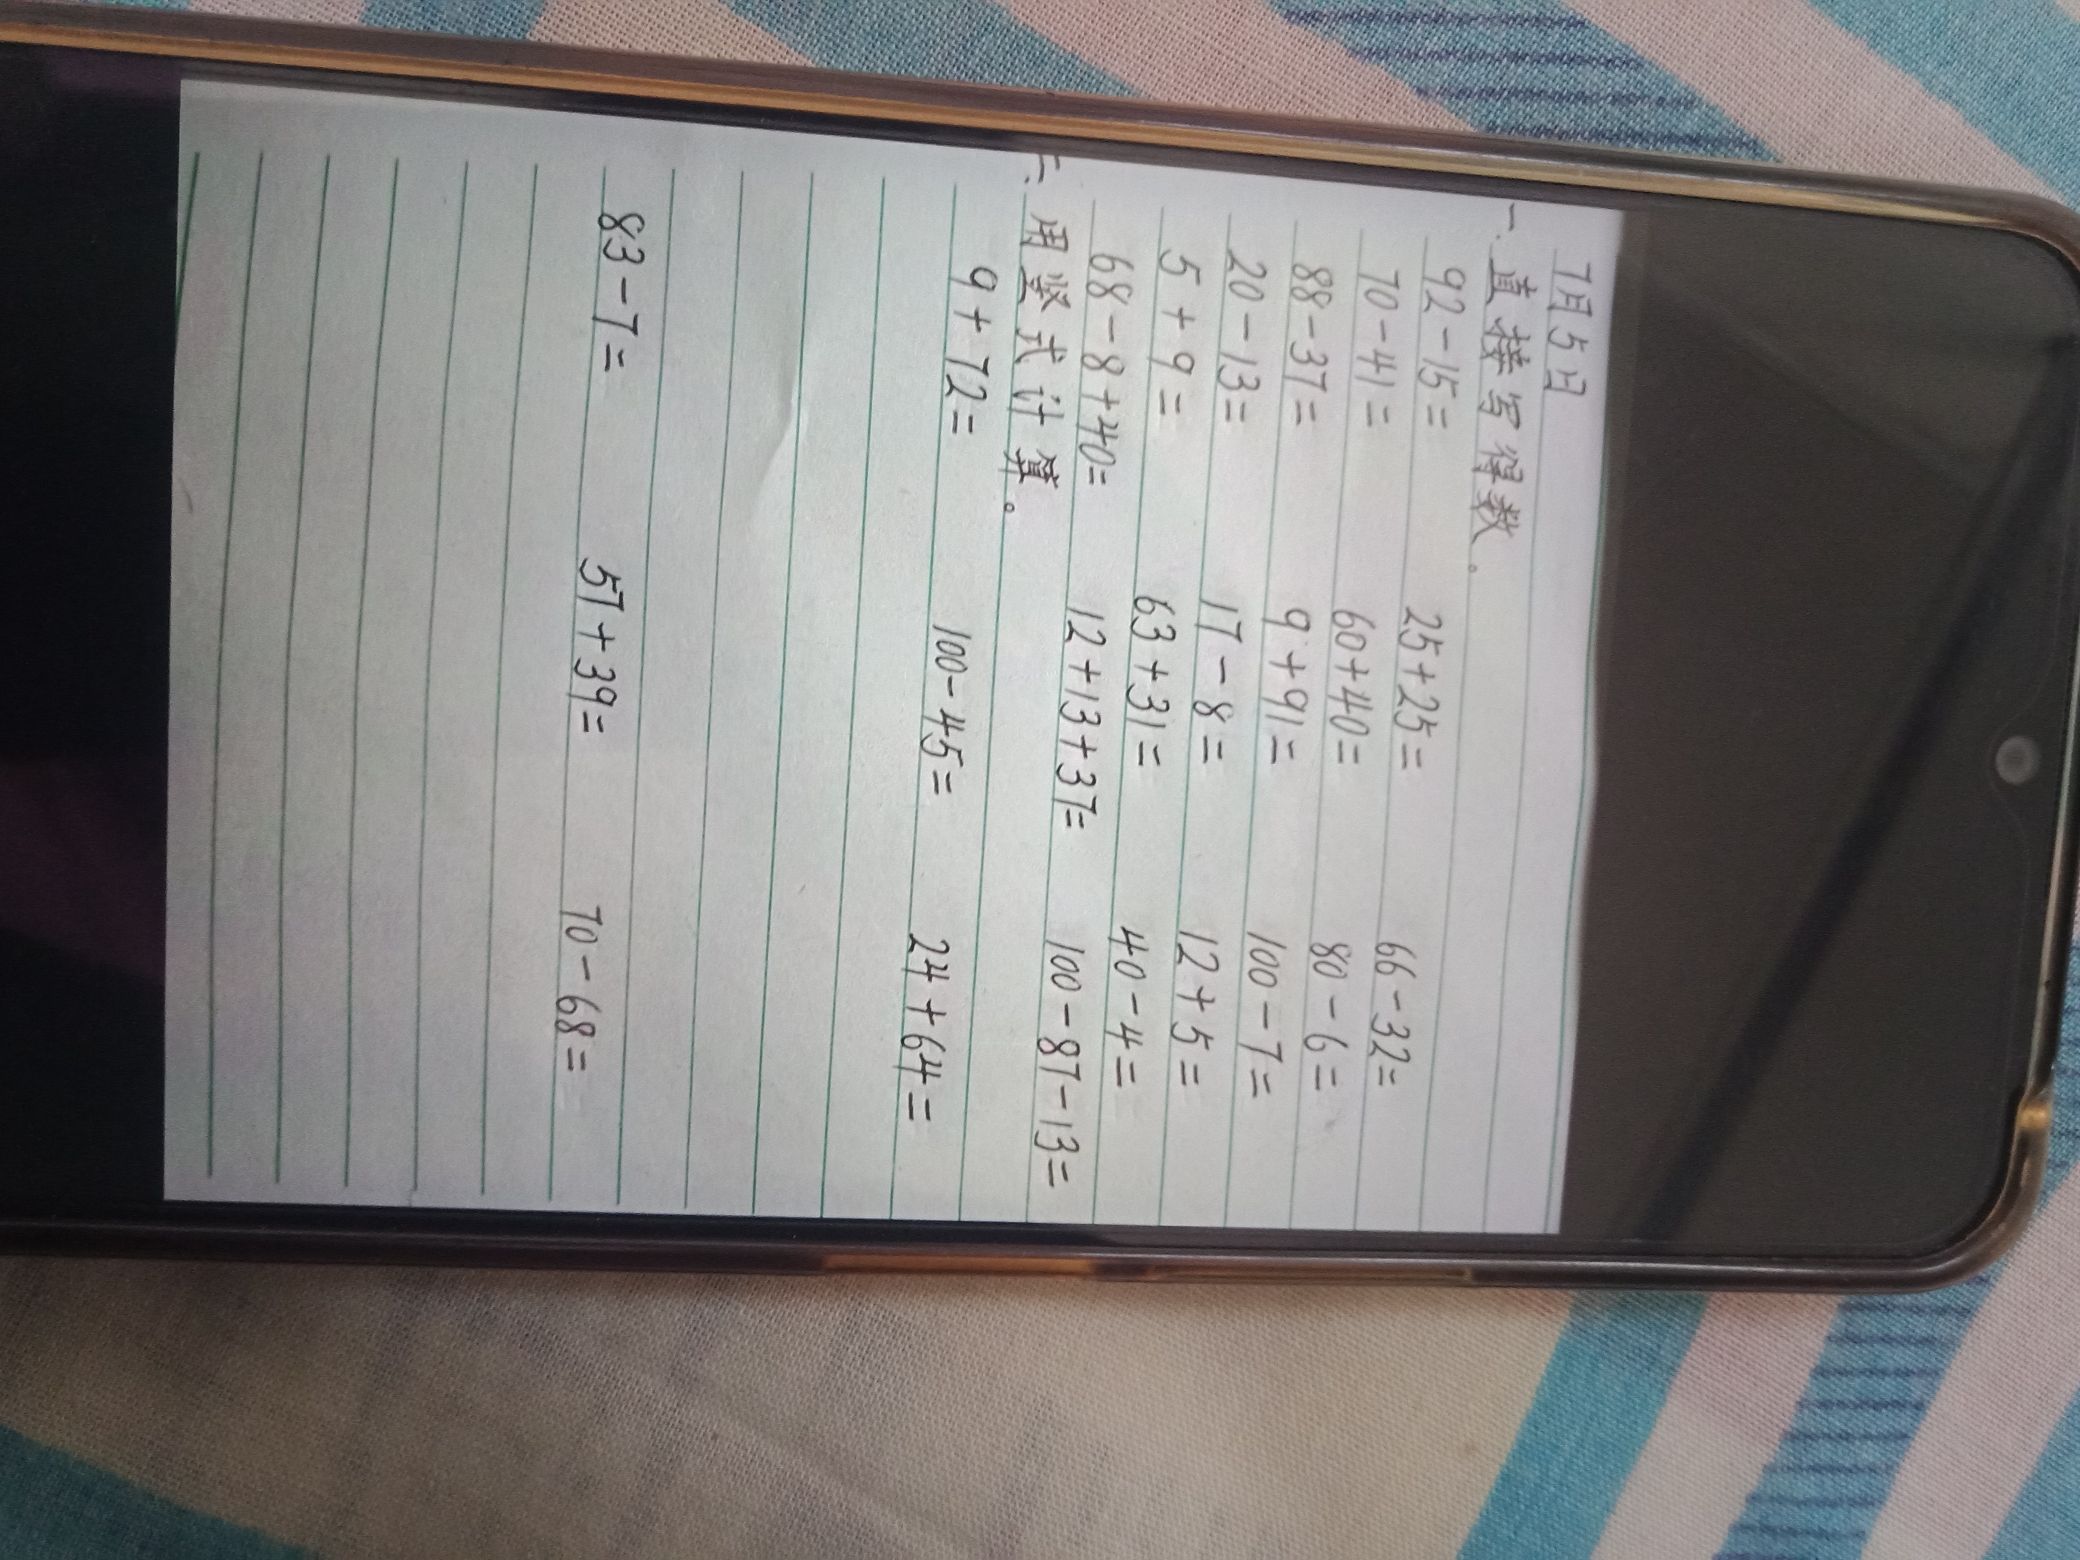 7月5日
一、直接写得数。
92-15= 25+25= 66-32=
70-41= 60+40= 80-6=
88-37= 9+91= 100-7=
20-13= 17-8= 12+5=
5+9= 63+31= 40-4=
68-8+40= 12+13+37= 100-87-13=
二、用竖式计算。
9+72= 100-45= 24+64=
83-7= 57+39= 70-68=